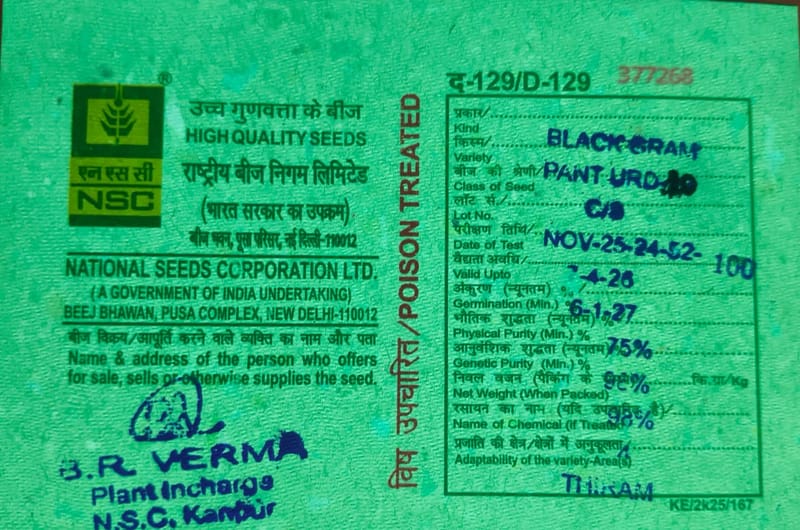 ®
एन एस सी
NSC
उच्च गुणवत्ता के बीज
HIGH QUALITY SEEDS
राष्ट्रीय बीज निगम लिमिटेड
(भारत सरकार का उपक्रम)
बीज भवन, पूसा परिसर, नई दिल्ली-110012
NATIONAL SEEDS CORPORATION LTD.
(A GOVERNMENT OF INDIA UNDERTAKING)
BEEJ BHAWAN, PUSA COMPLEX, NEW DELHI-110012
बीज विक्रय/आपूर्ति करने वाले व्यक्ति का नाम और पता
Name & address of the person who offers
for sale, sells or otherwise supplies the seed.
B.R VERMA
Plant Incharge
N.S.C. Kanpur
विष उपचारित/POISON TREATED
द-129/D-129 377268
प्रकार/
Kind
BLACK GRAM
किस्म/
Variety
PANT URD-
बीज की श्रेणी/
Class of Seed
C/S
लॉट सं./
Lot No.
NOV-25-24-52-100
परीक्षण तिथि/
Date of Test
-4-26
वैद्यता अवधि/
Valid Upto
6-1-27
अंकुरण (न्यूनतम) %/
Germination (Min.) %
75%
भौतिक शुद्धता (न्यूनतम)%/
Physical Purity (Min.) %
98%
आनुवंशिक शुद्धता (न्यूनतम)
Genetic Purity (Min.) %
98%
निवल वजन (पैकिंग के कि.ग्रा/Kg
Net Weight (When Packed)
रसायन का नाम (यदि उपचारित है)/
Name of Chemical (If Treated)
THIRAM
प्रजाति की क्षेत्र/क्षेत्रों में अनुकूलता/
Adaptability of the variety-Area(s)
KE/2k25/167